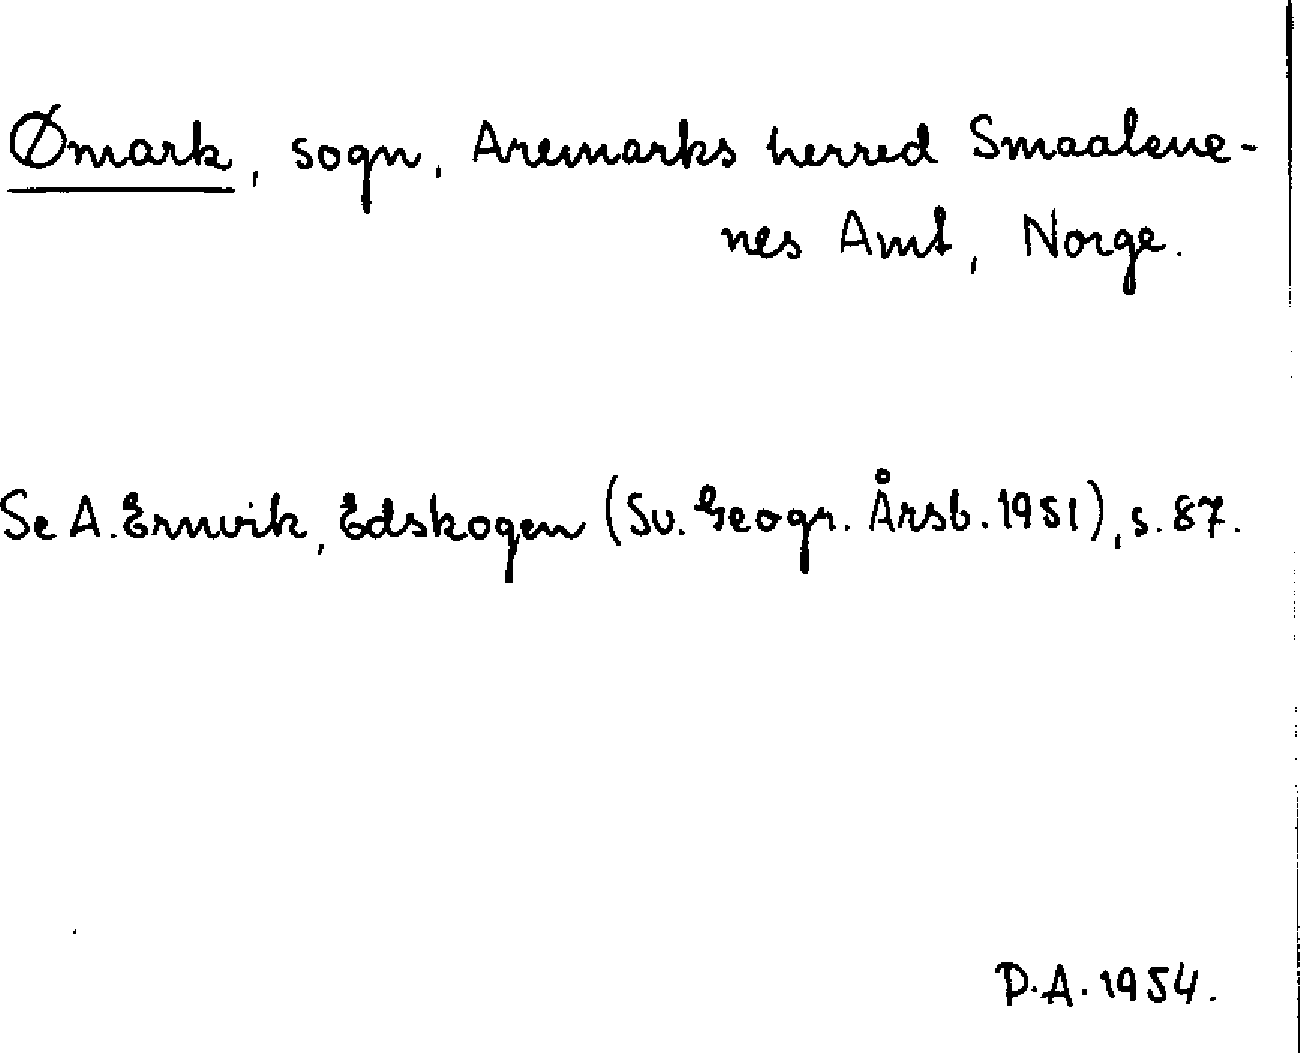 Ømark, sogn, Aremarks herred Smaalene-
nes Amt, Norge.
Se A. Ernvik, Edskogen (Sv. Geogr. Årsb. 1951), s. 87.
D.A. 1954.